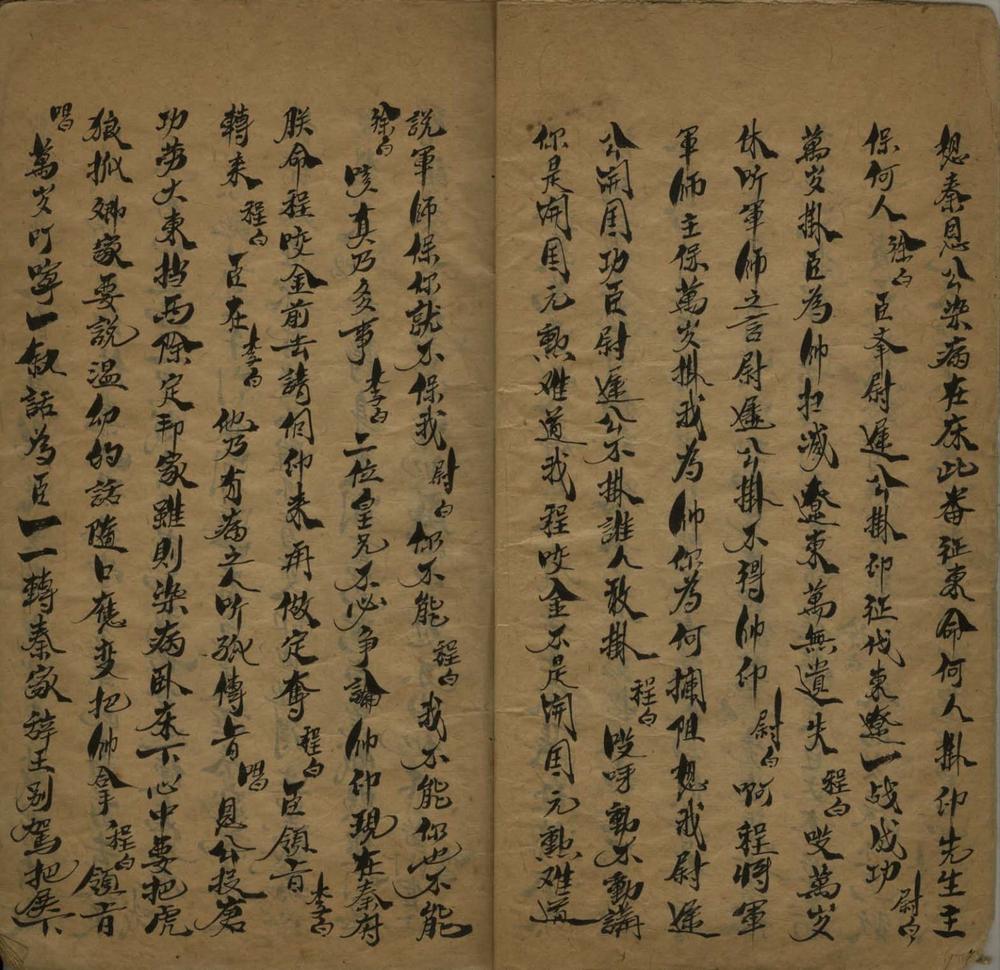 想秦恩公染病在床此番征東命何人掛印先生主
保何人 徐白 臣奉尉遲公掛印征伐東遼一战成功 尉白
萬岁掛臣為帅扫滅遼東萬無遺失 程白 哎萬岁
休听軍师之言尉遲公掛不得帅印 尉白 啊程將軍
軍师主保萬岁掛我為帅你為何攔阻想我尉遲
公開国功臣尉遲公不掛誰人敢掛 程白 哎呀動不動講
你是開国元勲难道我程咬金不是開国元勲难道
說軍师保你就不保我 尉白 你不能 程白 我不能你也不能
徐白 哎真乃多事 李白 二位皇兄不必争論帅印現在秦府
朕命程咬金前去請伺印来再做定奪 程白 臣領旨 李白
轉来 程白 臣在 李白 他乃有病之人听孤傳旨 唱 恩公投唐
功劳大東挡西除定邦家雖則染病卧床下心中要把虎
狼抓卿家要說温幼的話隨口應变把帅拿 程白 領旨
唱 萬岁叮嚀一叙話為臣一一轉秦家辞王别駕把展下